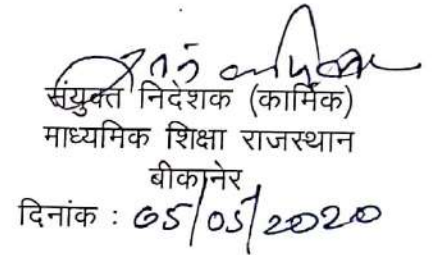 संयुक्त निदेशक (कार्मिक)
माध्यमिक शिक्षा राजस्थान
बीकानेर
दिनांक : 05/05/2020